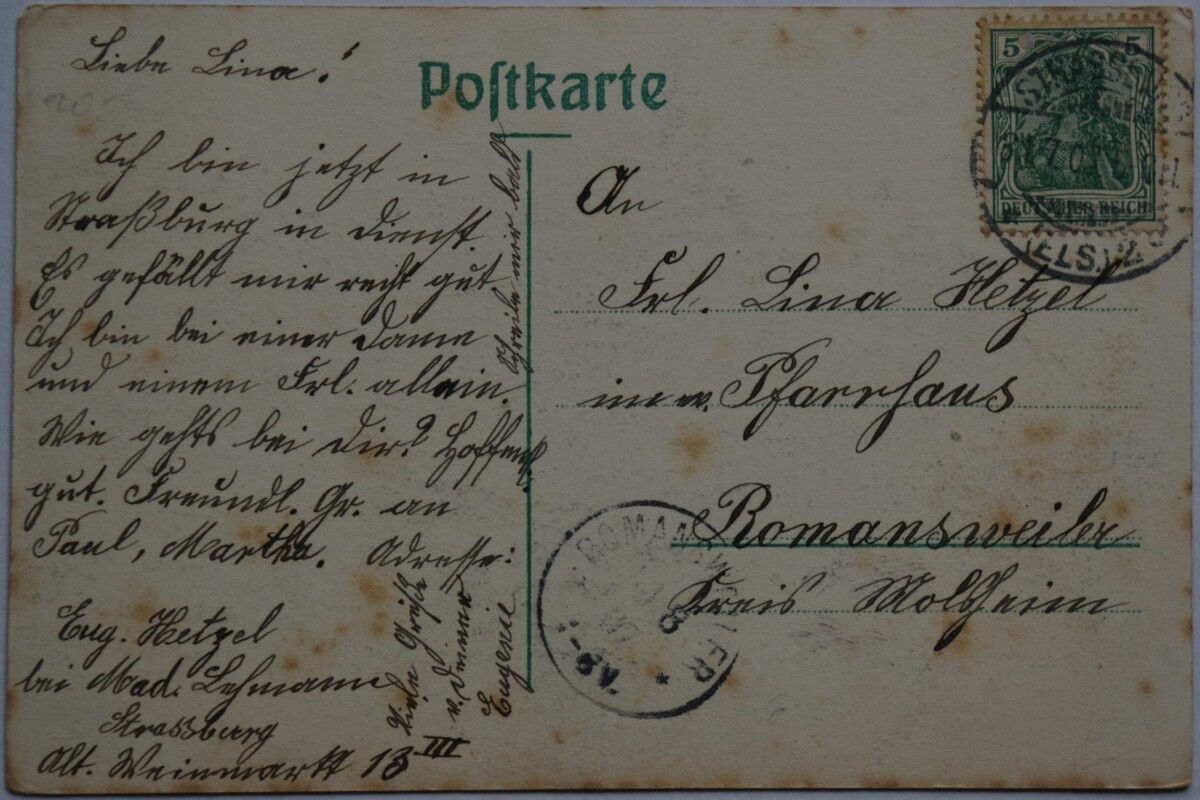 Postkarte
Liebe Lina!
Ich bin jetzt in
Straßburg in Dienst.
Es gefällt mir recht gut
Ich bin bei einer Dame
und einem Frl. allein.
Wie gehts bei Dir? Hoffentl.
gut. Freundl. Gr. an
Paul, Martha. Adresse:
Eug. Hetzel
bei Mad. Lehmann
Strassburg
Alt. Weinmarkt 13 III
Viele Grüße
v. Deiner
Eugenie
Schreibe mir bald
An
Frl. Lina Hetzel
im Pfarrhaus
Romansweiler
Kreis Molsheim
5 5
DEUTSCHES REICH
STRASSBURG
(ELS.) 2
ROMANSWEILER